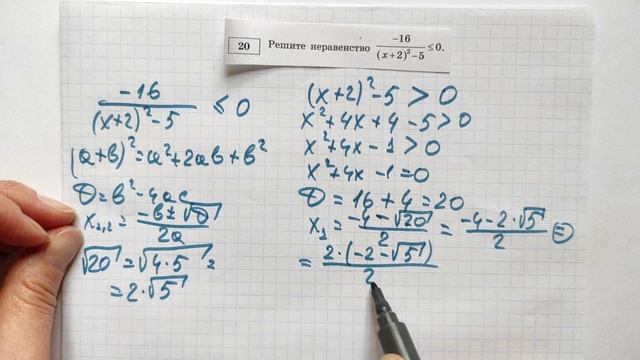 20 Решите неравенство -16/((x+2)²-5) ≤ 0.
-16/((x+2)²-5) ≤ 0
(a+b)²=a²+2ab+b²
D=b²-4ac
x₁,₂=(-b±√D)/2a
√20=√4·5=
=2·√5
(x+2)²-5>0
x²+4x+4-5>0
x²+4x-1>0
x²+4x-1=0
D=16+4=20
x₁=(-4-√20)/2=(-4-2·√5)/2=
=2·(-2-√5)/2